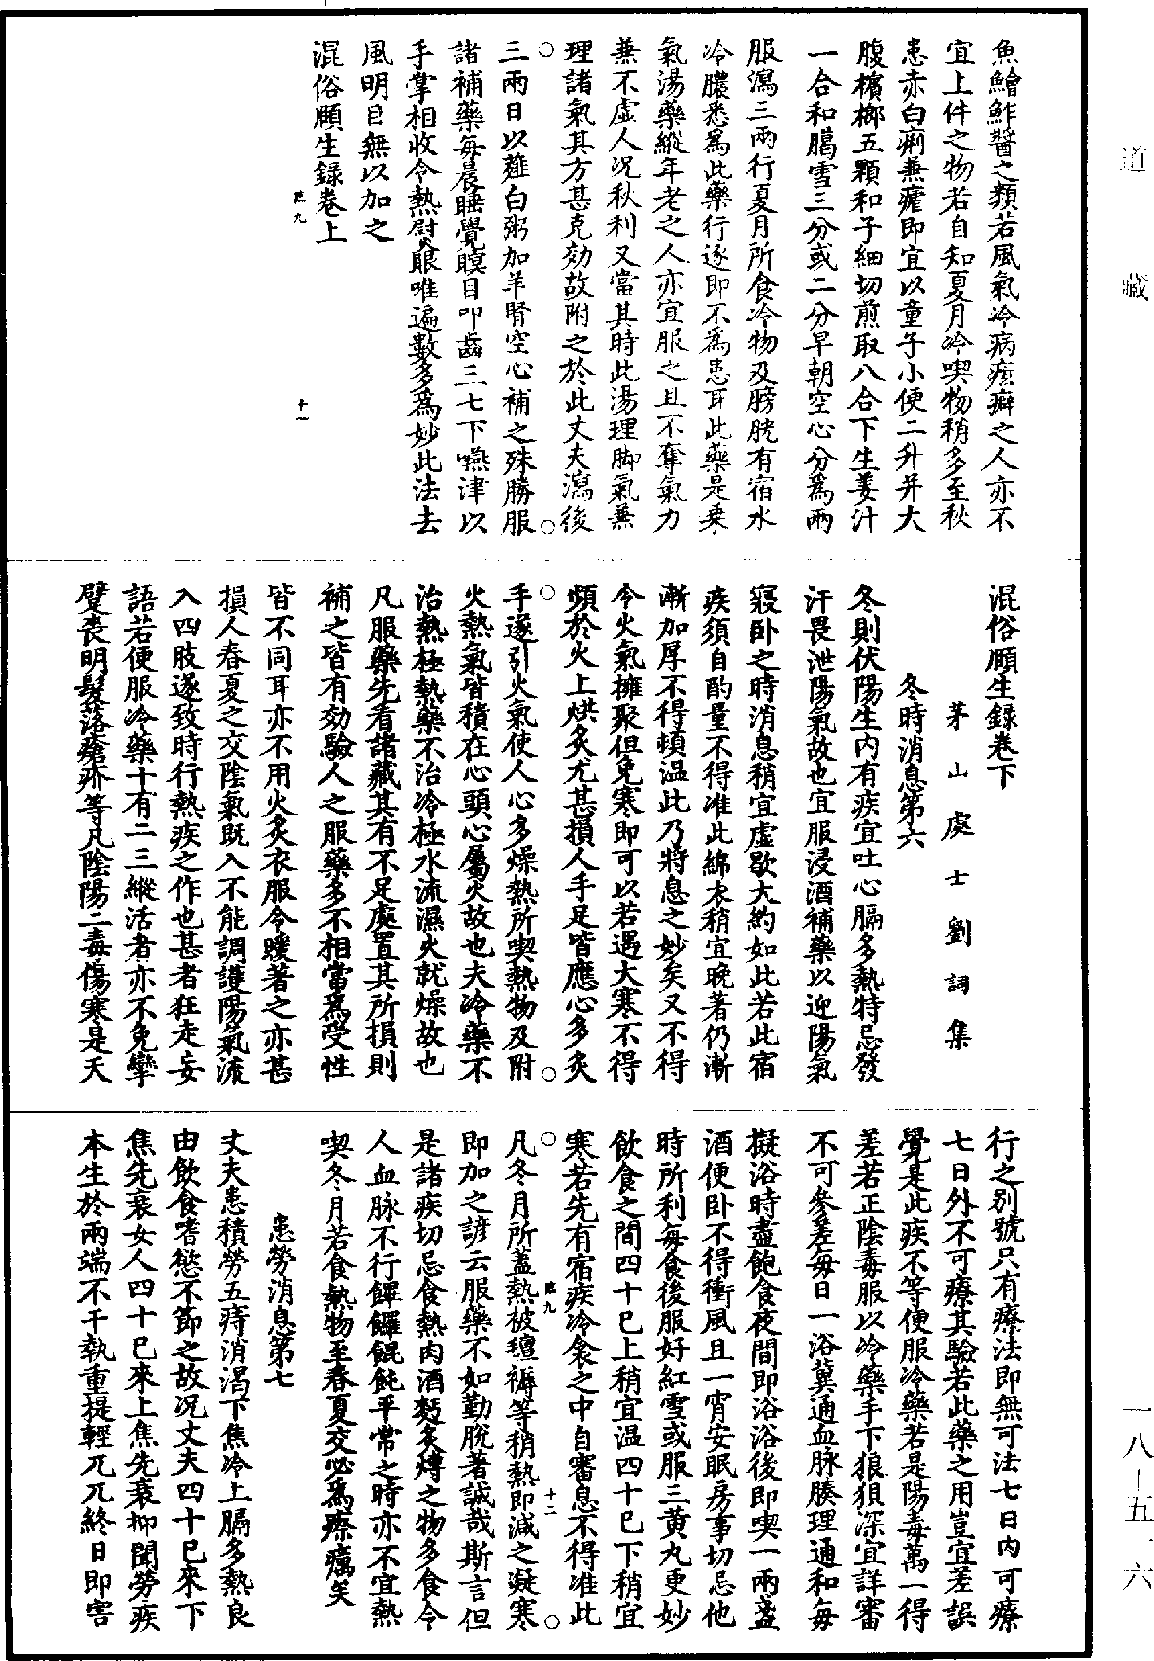 魚鱠鮓醬之類若風氣冷病痃癖之人亦不
宜上件之物若自知夏月冷喫物稍多至秋
患赤白痢兼瘧即宜以童子小便二升并大
腹檳榔五顆和子細切煎取八合下生姜汁
一合和臈雪三分或二分早朝空心分為兩
服瀉三兩行夏月所食冷物及膀胱有宿水
冷膿悉為此藥行逐即不為患耳此藥是乗
氣湯藥縱年老之人亦宜服之且不奪氣力
兼不虛人況秋利又當其時此湯理脚氣兼
理諸氣其方甚克効故附之於此丈夫瀉後
三兩日以薤白粥加羊腎空心補之殊勝服
諸補藥每晨睡覺瞑目叩齒三七下嚥津以
手掌相收令熱熨眼唯遍數多為妙此法去
風明目無以加之
混俗頤生録卷上
臨九
十一
混俗頤生録卷下
茅山處士劉詞集
冬時消息第六
冬則伏陽生內有疾宜吐心膈多熱特忌發
汗畏泄陽氣故也宜服浸酒補藥以迎陽氣
寢卧之時消息稍宜虛歇大約如此若此宿
疾須自酌量不得准此綿衣稍宜晚著仍漸
漸加厚不得頓温此乃將息之妙矣又不得
令火氣擁聚但免寒即可以若遇大寒不得
煩於火上烘炙尤甚損人手足皆應心多炙
手遂引火氣使人心多燥熱所喫熱物及附
火熱氣皆積在心頭心屬火故也夫冷藥不
治熱極熱藥不治冷極水流濕火就燥故也
凡服藥先看諸藏其有不足處置其所損則
補之皆有効驗人之服藥多不相當為受性
皆不同耳亦不用火炙衣服令暖著之亦甚
損人春夏之交陰氣既入不能調護陽氣流
入四肢遂致時行熱疾之作也甚者狂走妄
語若便服冷藥十有二三縱活者亦不免攣
躄喪明髮落瘡疥等凡陰陽二毒傷寒是天
行之別號只有療法即無可法七日內可療
七日外不可療其驗若此藥之用豈宜差誤
覺是此疾不等便服冷藥若是陽毒萬一得
差若正陰毒服以冷藥手下狼狽深宜詳審
不可參差每日一浴冀通血脉腠理通和每
擬浴時盡飽食夜間即浴浴後即喫一兩盞
酒便卧不得衝風且一宵安眠房事切忌他
時所利每食後服好紅雪或服三黃丸更妙
飲食之間四十已上稍宜温四十已下稍宜
寒若先有宿疾冷衾之中自審息不得准此
臨九
十二
凡冬月所蓋熱被氊褥等稍熱即減之凝寒
即加之諺云服藥不如勤脫著誠哉斯言但
是諸疾切忌食熱肉酒麪炙煿之物多食令
人血脉不行饆饠餛飩平常之時亦不宜熱
喫冬月若食熱物至春夏交必為瘵癘矣
患勞消息第七
丈夫患積勞五痔消渴下焦冷上膈多熱良
由飲食嗜慾不節之故况丈夫四十已來下
焦先衰女人四十已來上焦先衰抑聞勞疾
本生於兩端不干執重提輕兀兀終日即害
道藏
一八—五一六